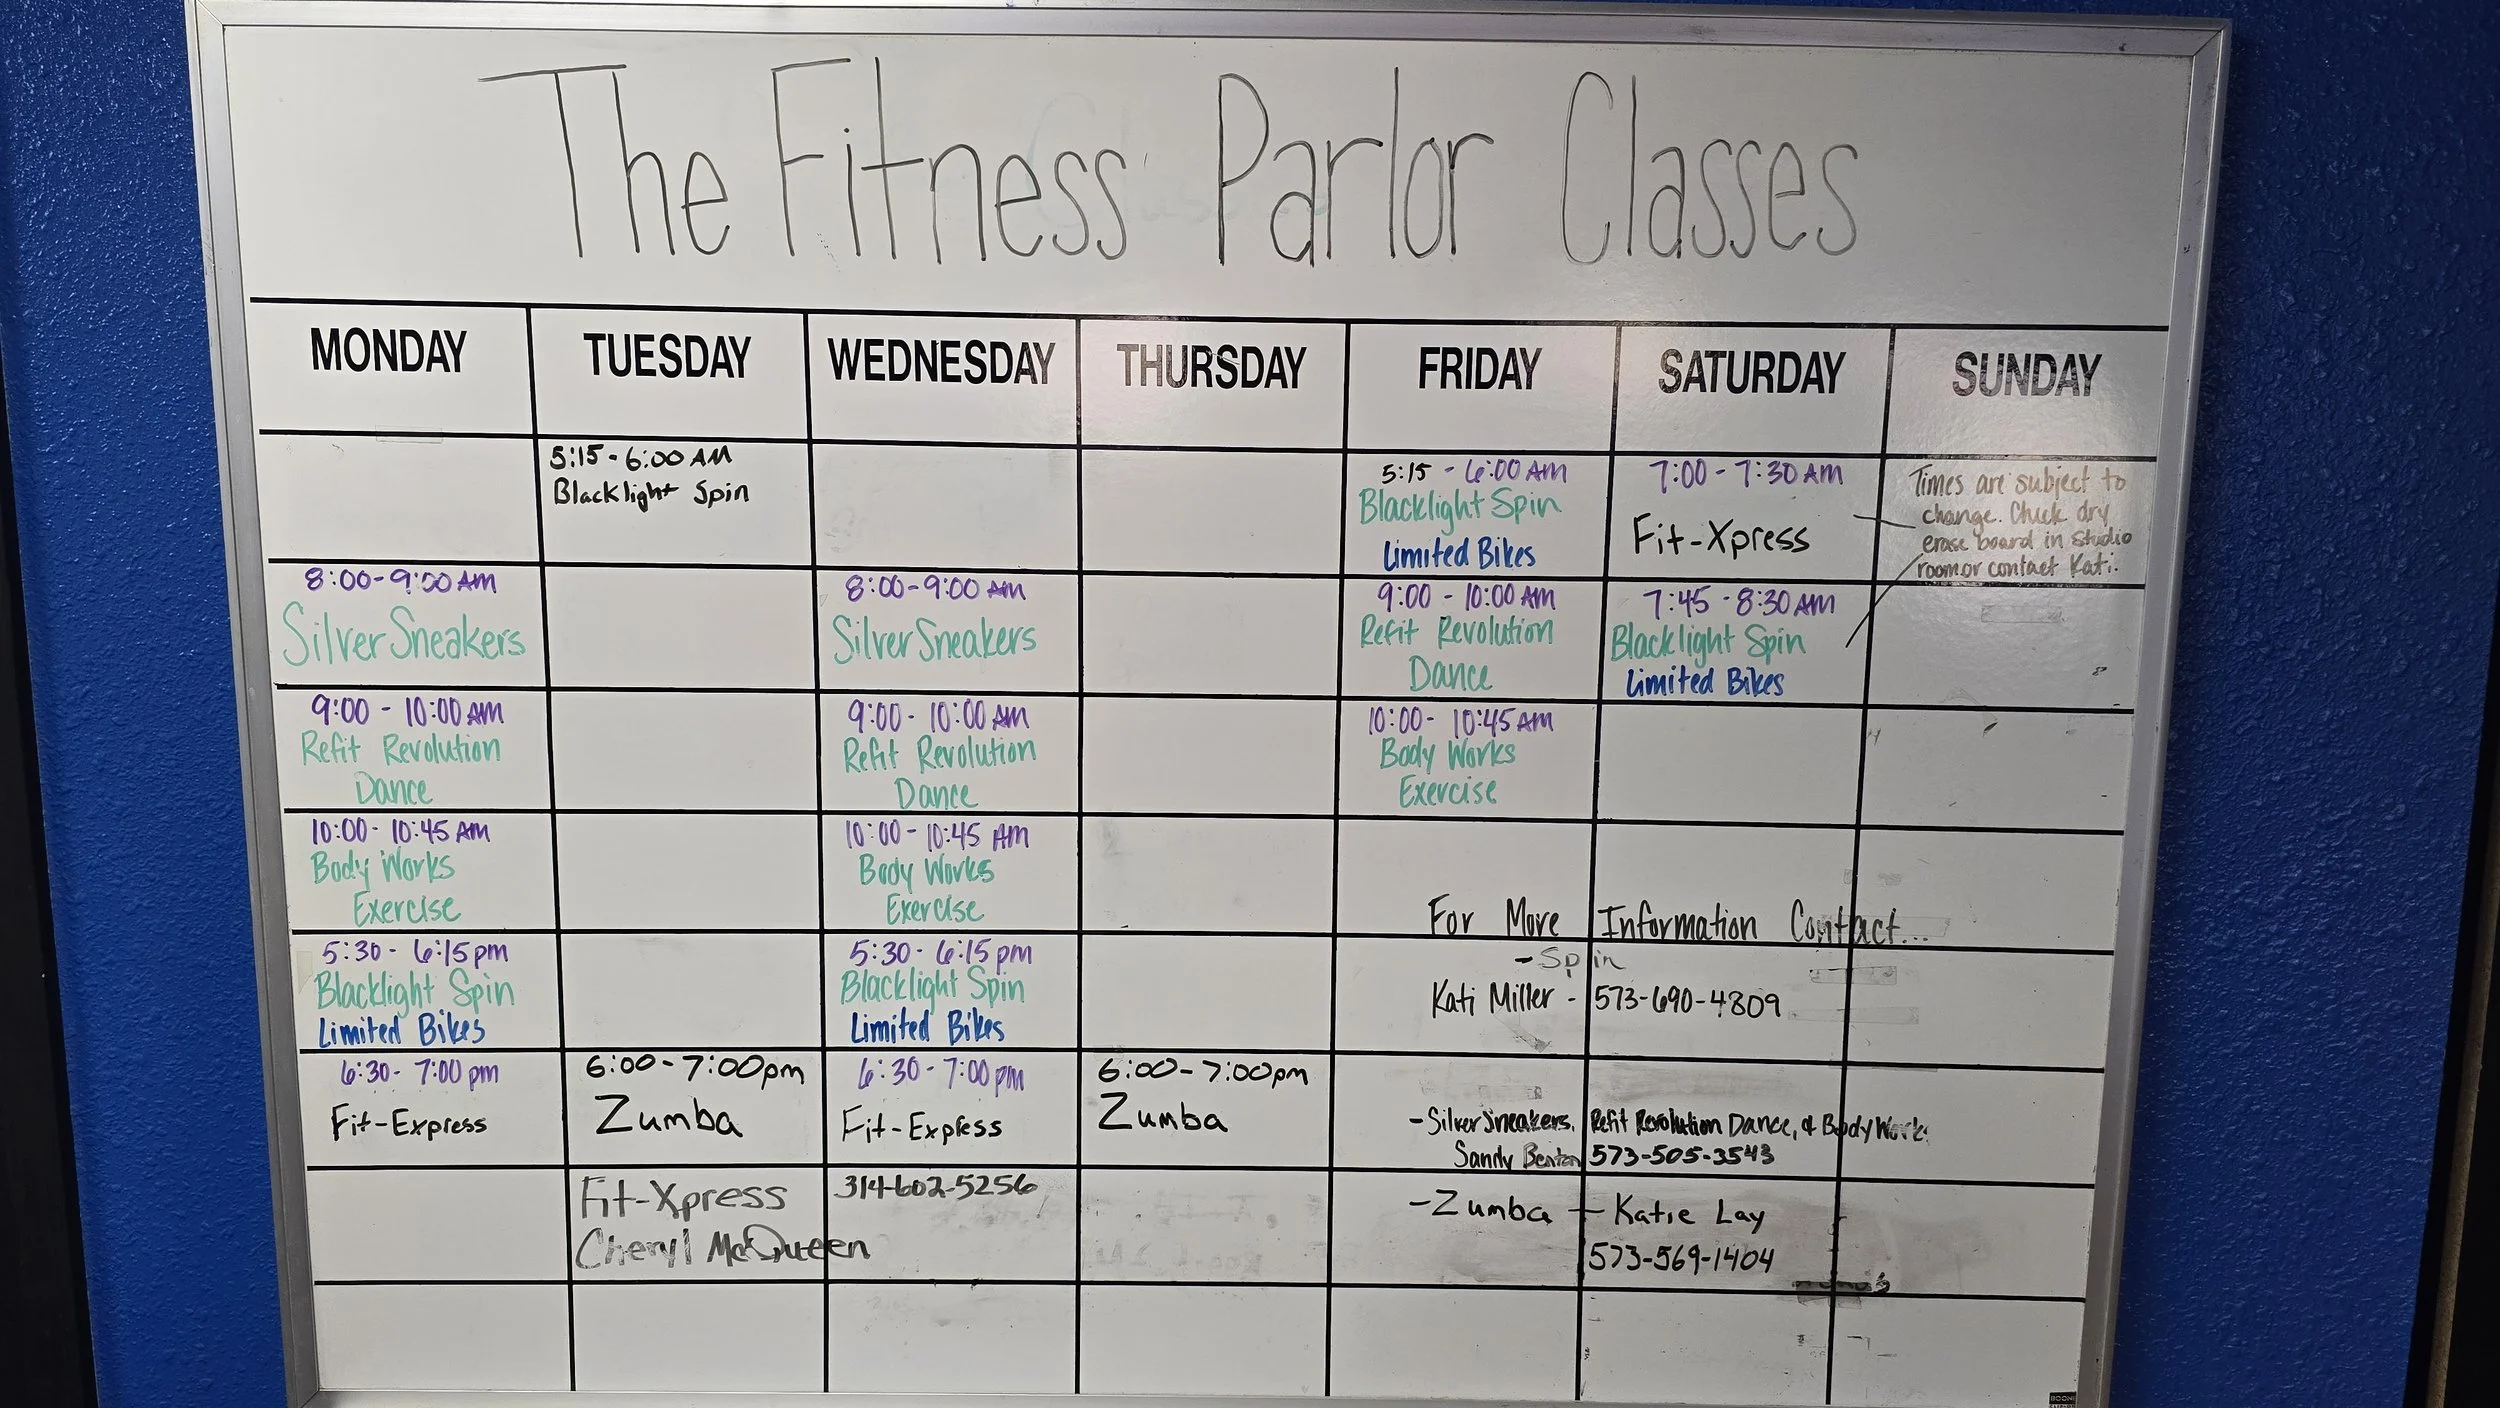 The Fitness Parlor Classes
MONDAY
TUESDAY
WEDNESDAY
THURSDAY
FRIDAY
SATURDAY
SUNDAY
5:15 - 6:00 AM
Blacklight Spin
5:15 - 6:00 AM
Blacklight Spin
Limited Bikes
7:00 - 7:30 AM
Fit-Xpress
Times are subject to
change. Check dry
erase board in studio
room or contact Kati.
8:00-9:00 AM
SilverSneakers
8:00-9:00 AM
SilverSneakers
9:00 - 10:00 AM
Refit Revolution
Dance
7:45 - 8:30 AM
Blacklight Spin
Limited Bikes
9:00 - 10:00 AM
Refit Revolution
Dance
9:00 - 10:00 AM
Refit Revolution
Dance
10:00 - 10:45 AM
Body Works
Exercise
10:00 - 10:45 AM
Body Works
Exercise
10:00 - 10:45 AM
Body Works
Exercise
For More Information Contact...
5:30 - 6:15 pm
Blacklight Spin
Limited Bikes
5:30 - 6:15 pm
Blacklight Spin
Limited Bikes
- Spin
Kati Miller - 573-690-4809
6:30 - 7:00 pm
Fit-Express
6:00 - 7:00 pm
Zumba
6:30 - 7:00 pm
Fit-Express
6:00 - 7:00 pm
Zumba
- SilverSneakers, Refit Revolution Dance, & Body Work
Sandy Benton 573-505-3543
Fit-Xpress 314-602-5256
Cheryl McQueen
- Zumba - Katie Lay
573-569-1404